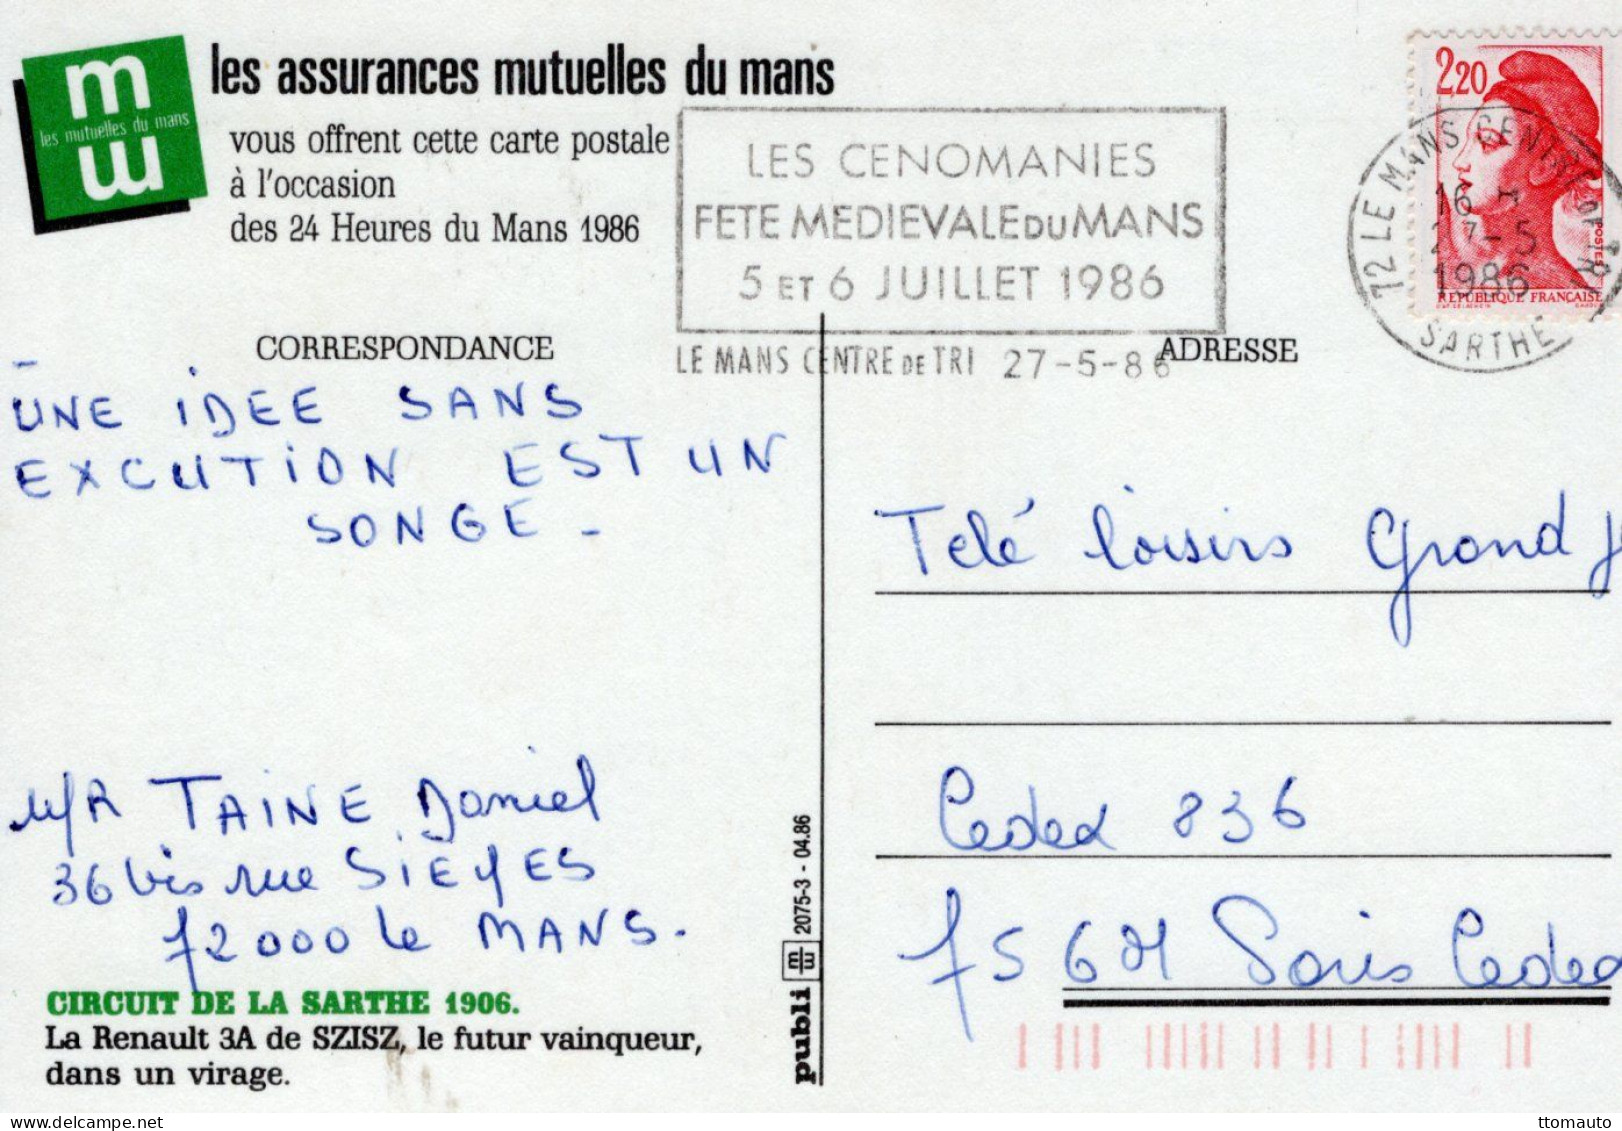 m
les mutuelles du mans
m
les assurances mutuelles du mans
vous offrent cette carte postale
à l'occasion
des 24 Heures du Mans 1986
LES CENOMANIES
FETE MEDIEVALE DU MANS
5 ET 6 JUILLET 1986
LE MANS CENTRE DE TRI 27-5-86
2,20
POSTES
REPUBLIQUE FRANÇAISE
72 LE MANS CENTRE DE TRI
16 H
27-5
1986
SARTHE
CORRESPONDANCE
ADRESSE
UNE IDEE SANS
EXCUTION EST UN
SONGE -
Telé loisirs Grand J
Cedex 836
75 601 Paris Cedex
M/R TAINE Daniel
36 bis rue SIEYES
72000 le MANS.
CIRCUIT DE LA SARTHE 1906.
La Renault 3A de SZISZ, le futur vainqueur,
dans un virage.
publi m 2075-3 - 04.86
ttomauto